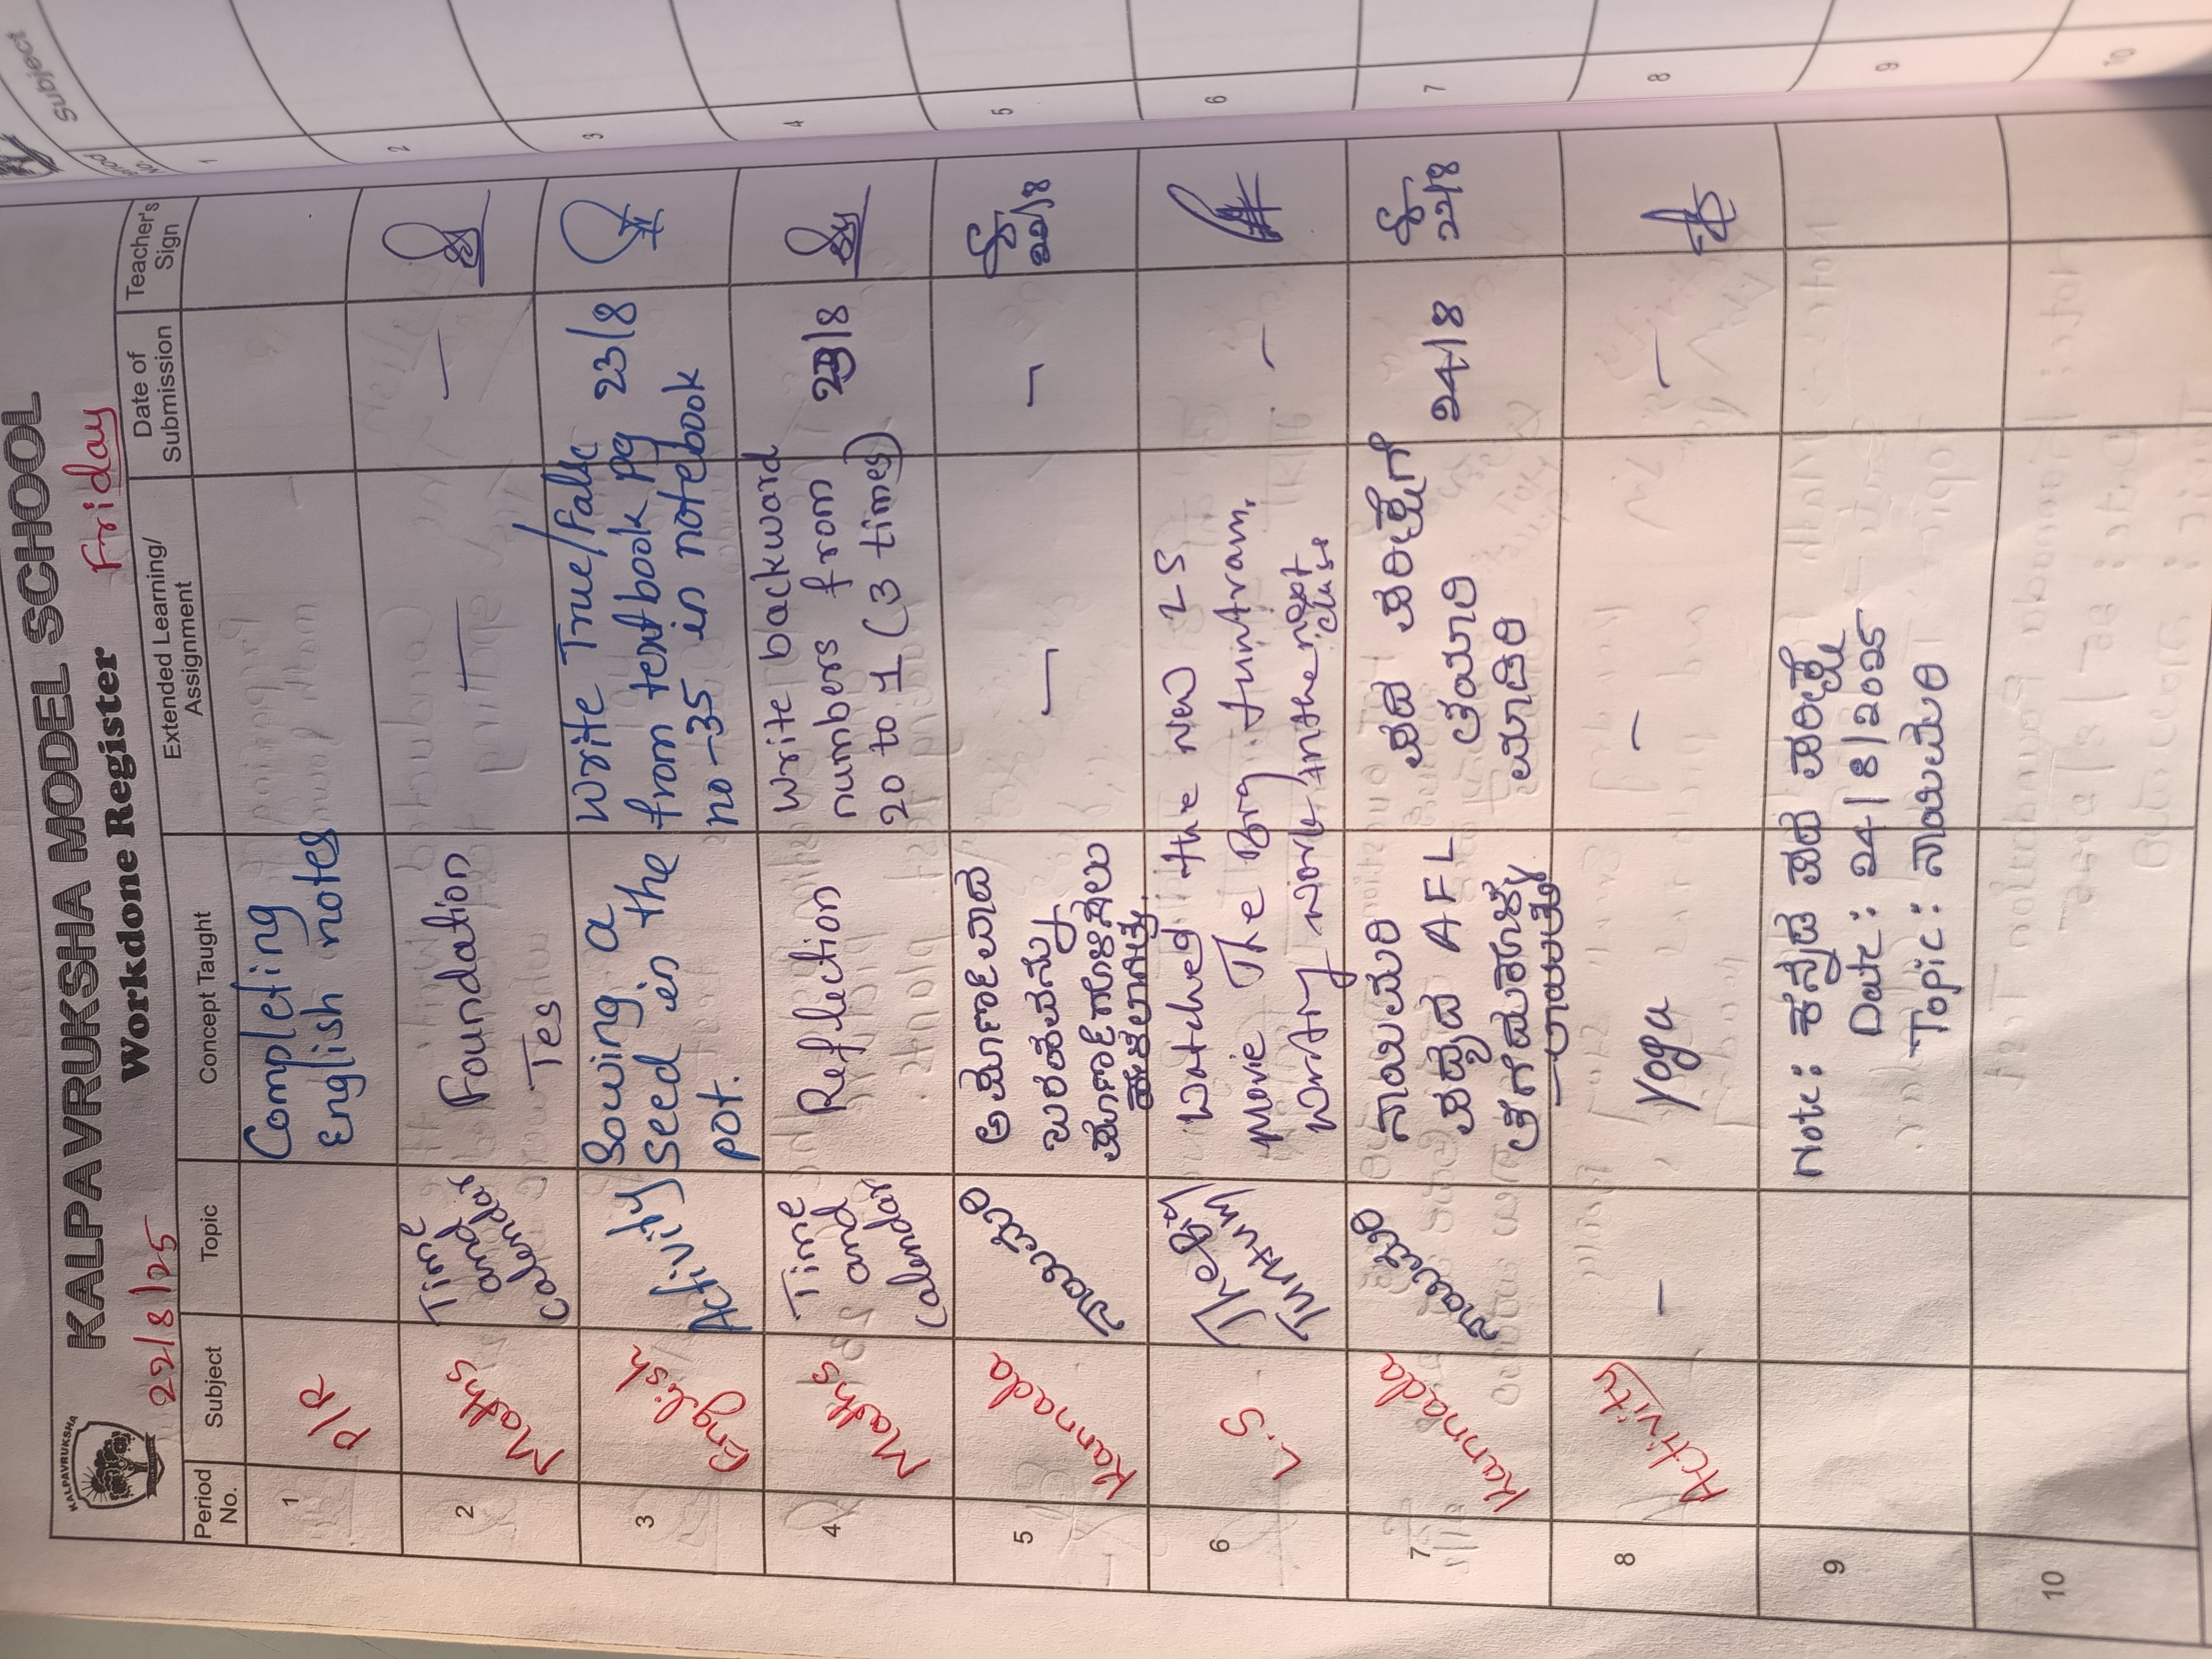 KALPAVRUKSHA
KALPAVRUKSHA MODEL SCHOOL
22/8/25 Workdone Register Friday
Period No. Subject Topic Concept Taught Extended Learning/ Assignment Date of Submission Teacher's Sign
1 P/R Completing
English notes
2 Maths Time and Calendar Foundation — —
Tes
3 English Activity Sowing a Write True/False 23/8
seed in the from textbook pg
pot. no-35 in notebook
4 Maths Time and Calendar Reflection Write backward 23/8
numbers from
20 to 1 (3 times)
5 Kannada ನಾಯಿಮರಿ — —
22/8
ಬರಹವನ್ನು
ಪೂರ್ಣಗೊಳಿಸಲು
6 L.S The Big Tuntrum Watched the new LS —
movie The Big tuntram.
worry work in the next class.
7 Kannada ನಾಯಿಮರಿ ನಾಯಿಮರಿ ಪದ ಪರೀಕ್ಷೆಗೆ 24/8
ಪದ್ಯದ AFL ತಯಾರಿ 22/8
ಮಾಡಿರಿ
8 Activity — yoga — —
9 Note: ಕನ್ನಡ ಪದ ಪರೀಕ್ಷೆ
Date: 24/8/2025
Topic: ನಾಯಿಮರಿ
10
Period No. Subject
1
2
3
4
5
6
7
8
9
10